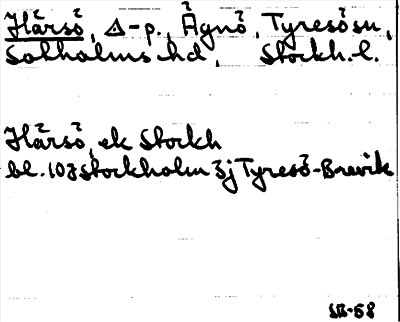 Härsö, Δ-p., Ägnö, Tyresö sn,
Sotholms hd, Stockh. l.
Härsö, ek Stockh
bl. 107 Stockholm 3j Tyresö-Brevik
-58